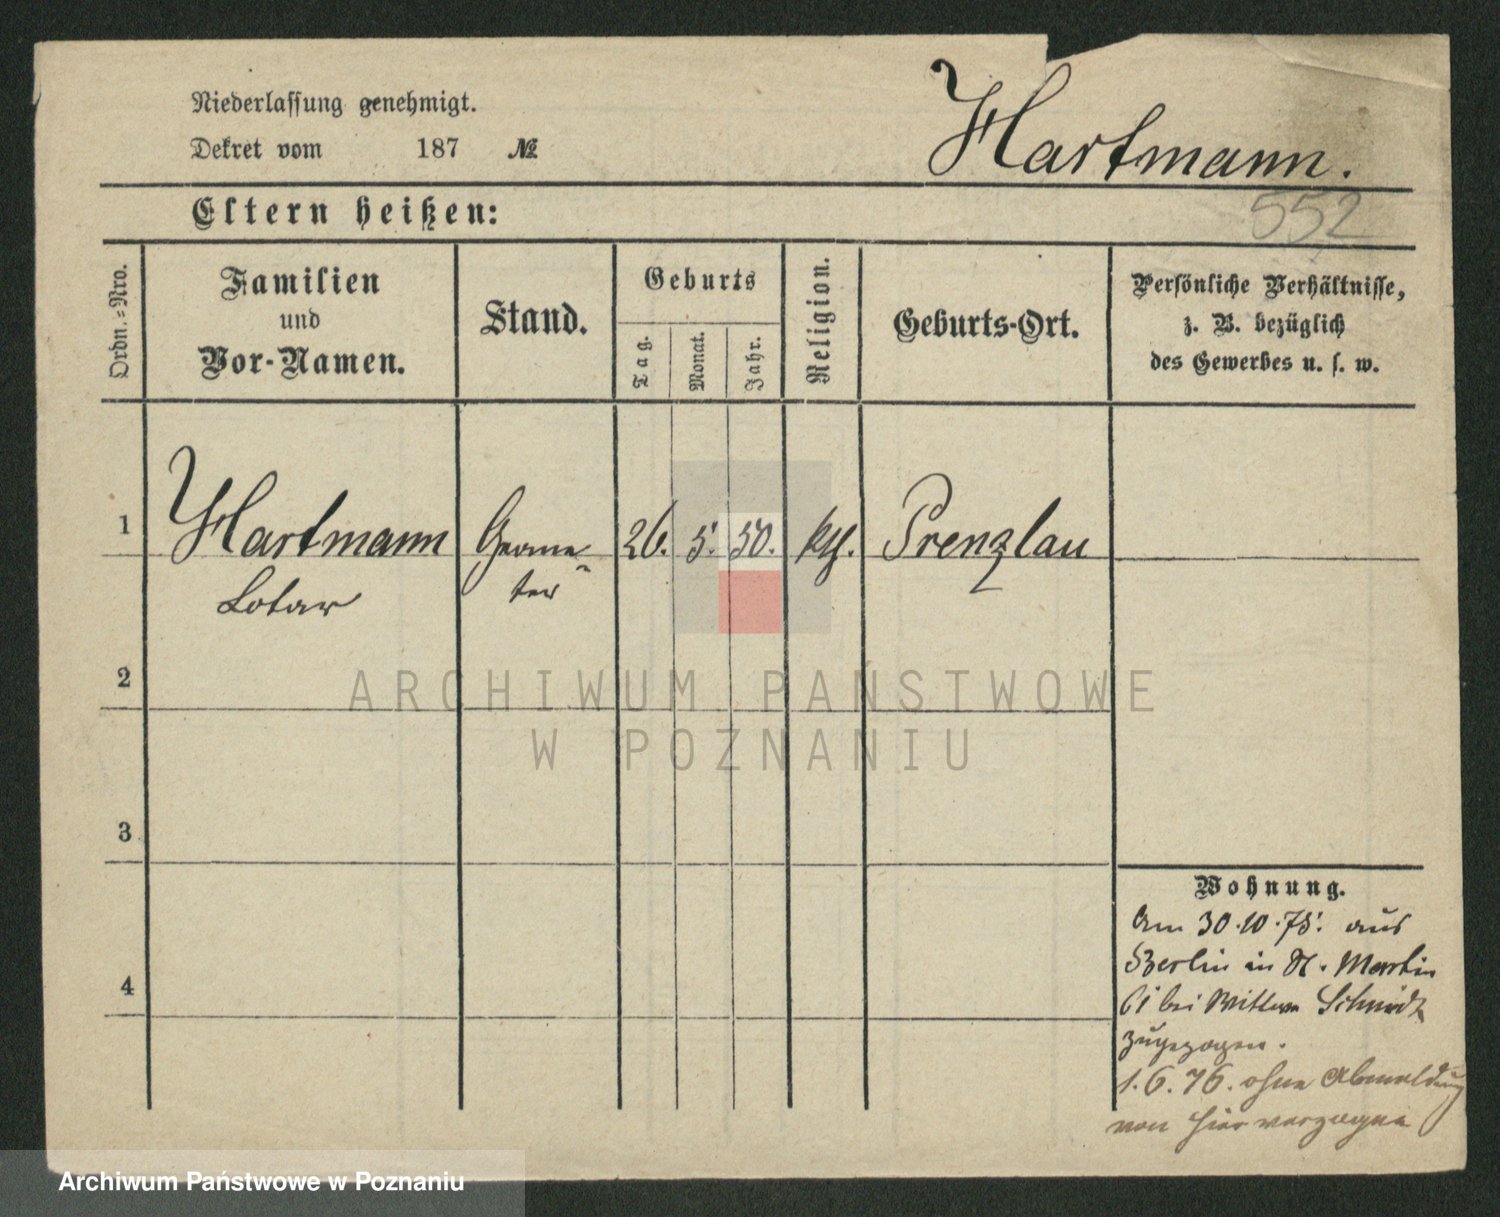 Niederlassung genehmigt.
Dekret vom 187 №
Hartmann.
552
Eltern heißen:
Ordn.=Nro.
Familien
und
Vor-Namen.
Stand.
Geburts
Tag.
Monat.
Jahr.
Religion.
Geburts-Ort.
Persönliche Verhältnisse,
z. B. bezüglich
des Gewerbes u. s. w.
1
Hartmann Geome 26. 5. 50. kth. Prenzlau
Lotar ter
2
3
4
ARCHIWUM PAŃSTWOWE
W POZNANIU
Wohnung.
Am 30.10.75. aus
Berlin in St. Martin
bei Wittwe Schmidt
zugezogen.
1.6.76. ohne Abmeldung
von hier verzogen
Archiwum Państwowe w Poznaniu